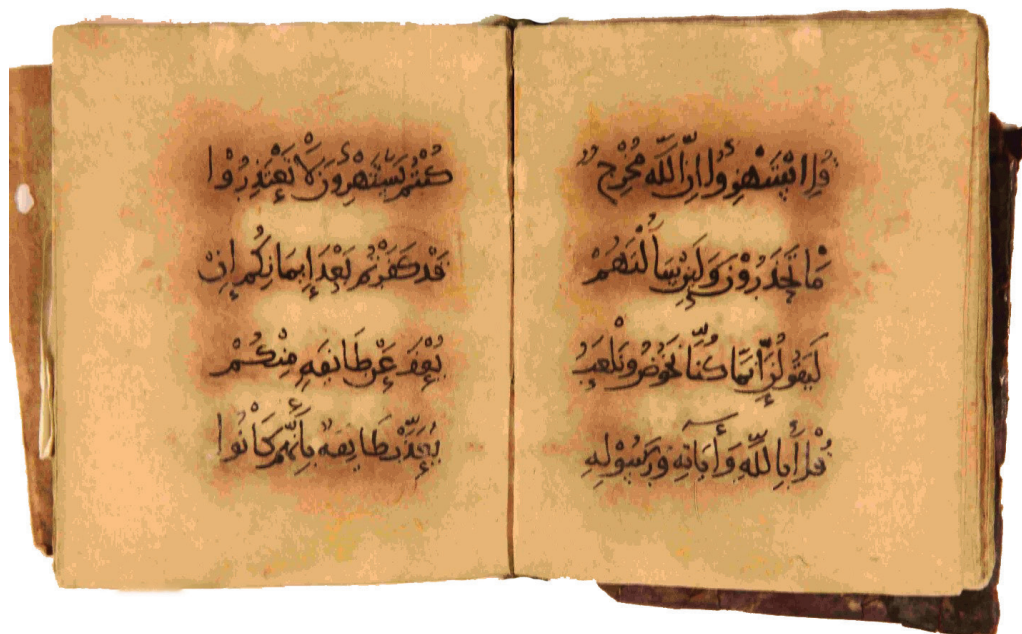 قُلِ اسْتَهْزِءُوا إِنَّ اللَّهَ مُخْرِجٌ
مَا تَحْذَرُوْنَ وَلَئِنْ سَأَلْتَهُمْ
لَيَقُولُنَّ إِنَّمَا كُنَّا نَخُوضُ وَنَلْعَبُ
قُلْ أَبِاللَّهِ وَآيَاتِهِ وَرَسُوْلِهِ
كُنْتُمْ تَسْتَهْزِءُونَ لَا تَعْتَذِرُوْا
قَدْ كَفَرْتُمْ بَعْدَ إِيمَانِكُمْ إِنْ
يُعْفَ عَنْ طَائِفَةٍ مِنْكُمْ
يُعَذَّبْ طَائِفَةٌ بِأَنَّهُمْ كَانُوا